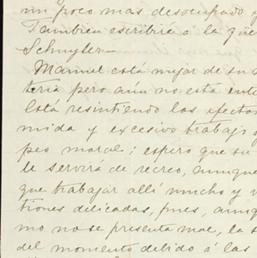 un poco mas desocupado y
Tambien escribiré á la que
Schuyler—
Manuel está mejor de su
teria pero aun no está ente
Está resintiendo los efectos
mida y excesivo trabajo
peo moral; espero que su
le servirá de recreo, aunque
que trabajar allí mucho y
tiones delicadas, pues, aunq
mo no se presenta mal, la s
del momento debido á las